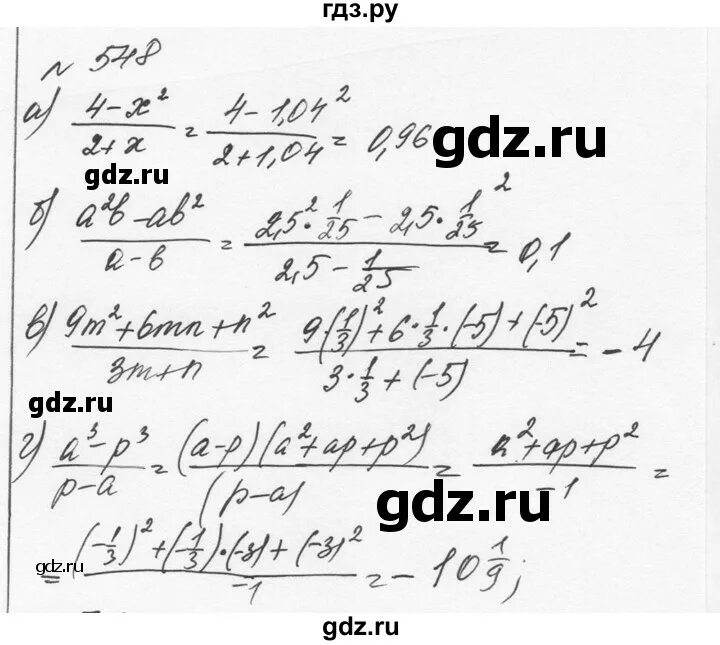 гдз.ру
№ 548
а) (4-x²)/(2+x) = (4-1,04²)/(2+1,04) = 0,96
gdz.ru
gdz.ru
б) (a²b-ab²)/(a-b) = (2,5²·1/25 - 2,5·1/25²)/(2,5-1/25) = 0,1
в) (9m²+6mn+n²)/(3m+n) = (9(1/3)²+6·1/3·(-5)+(-5)²)/(3·1/3+(-5)) = -4
gdz.ru
г) (a³-p³)/(p-a) = (a-p)(a²+ap+p²)/(p-a) = (a²+ap+p²)/-1 =
gdz.ru
= ((-1/3)²+(-1/3)·(-3)+(-3)²)/-1 = -10 1/9;
gdz.ru
gdz.ru